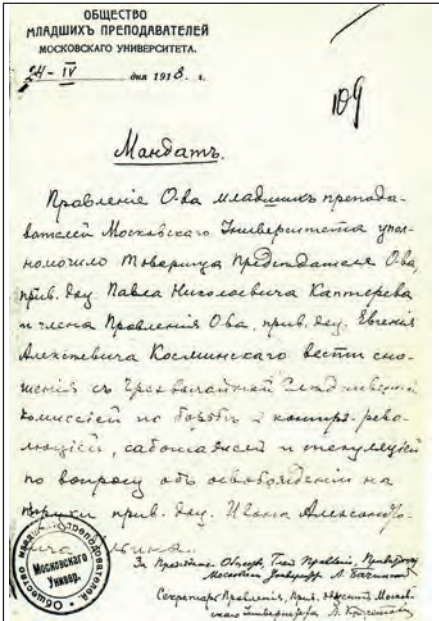 ОБЩЕСТВО
МЛАДШИХЪ ПРЕПОДАВАТЕЛЕЙ
МОСКОВСКАГО УНИВЕРСИТЕТА.
24 - IV дня 1918. г.
109
Мандатъ.
Правленіе О-ва младшихъ препода-
вателей Московскаго Университета упол-
номочило Товарища Предсѣдателя О-ва,
прив. доц. Павла Николаевича Каптерева
и члена Правленія О-ва, прив. доц. Евгенія
Алексѣевича Косминскаго вести сно-
шенія съ Чрезвычайной Слѣдственной
Комиссіей по борьбѣ с контръ-рево-
люціей, саботажем и спекуляціей
по вопросу объ освобожденіи на
поруки прив. доц. Ивана Александро-
вича Ильина.
За Предсѣдателя Общества, Член Правленія,
Московского
Секретарь Правленія, прив. доцент Москов-
скаго Университета
Общество младш. преподавателей.
Московскаго
Универ.